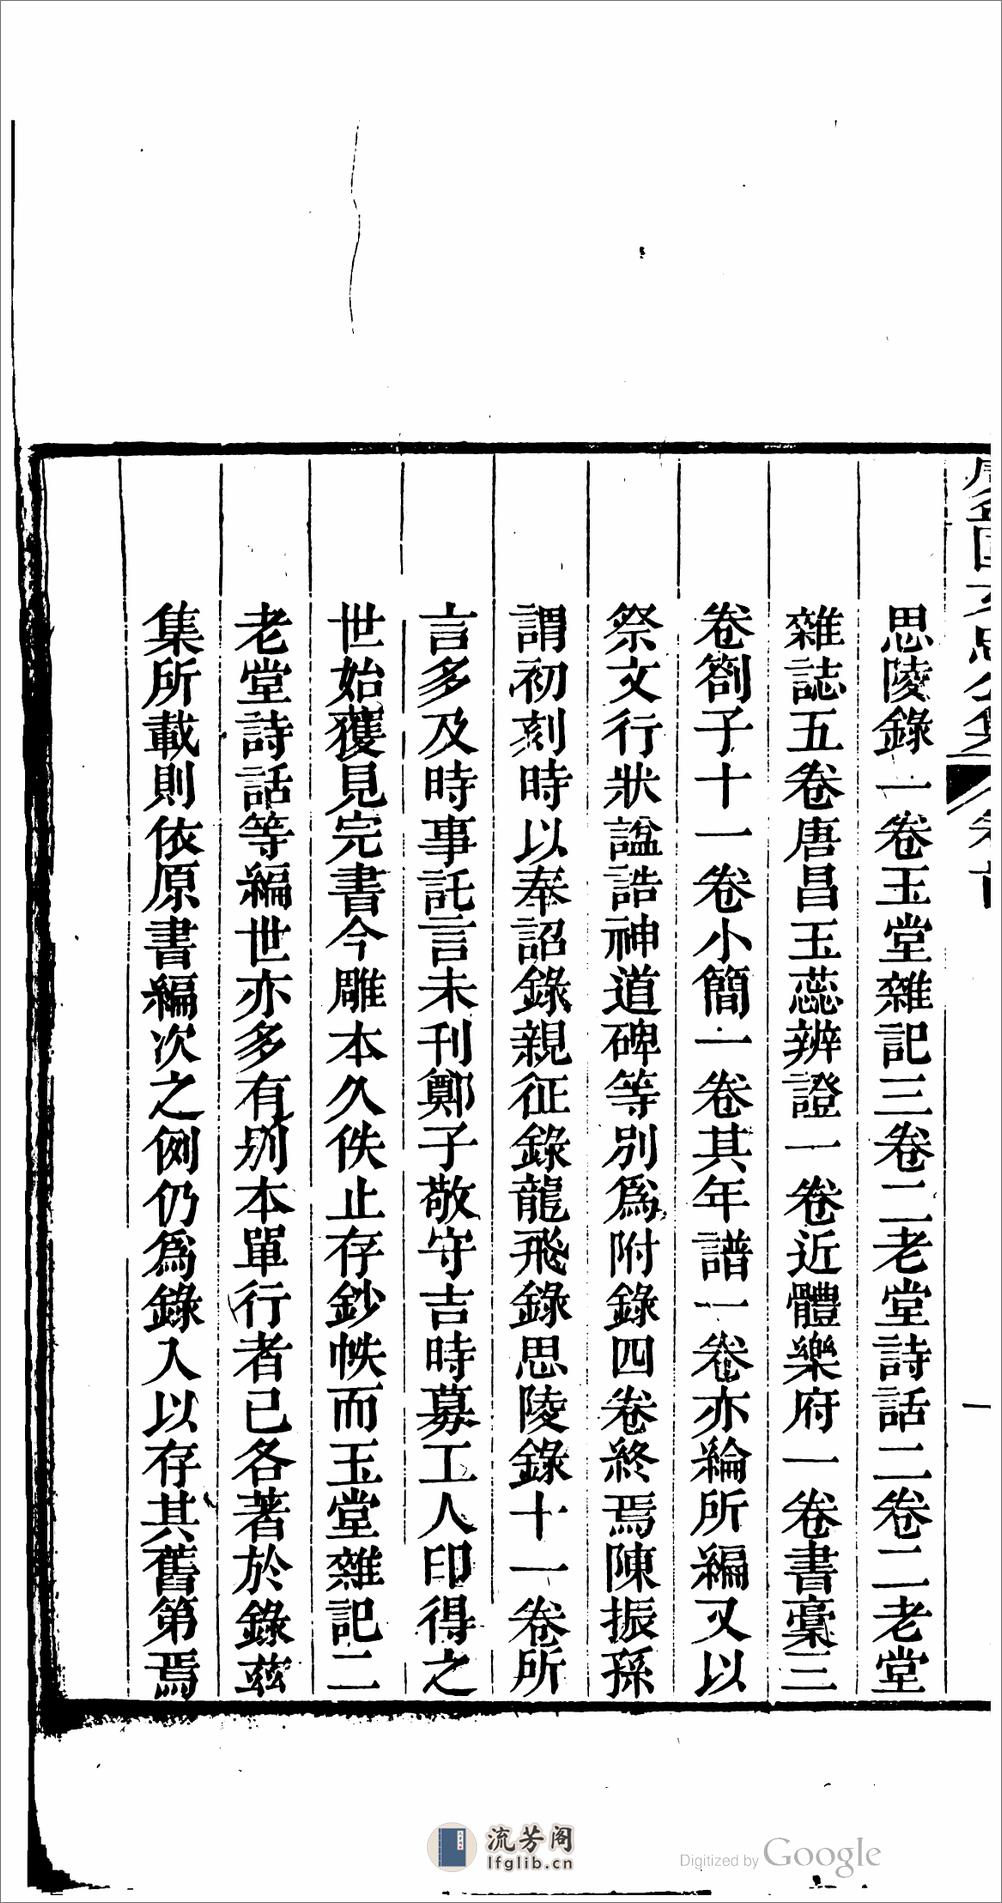 思陵錄一卷玉堂雜記三卷二老堂詩話二卷二老堂
雜誌五卷唐昌玉蕊辨證一卷近體樂府一卷書稾三
卷劄子十一卷小簡一卷其年譜一卷亦綸所編又以
祭文行狀諡誥神道碑等別爲附錄四卷終焉陳振孫
謂初刻時以奉詔錄親征錄龍飛錄思陵錄十一卷所
言多及時事託言未刊鄭子敬守吉時募工人印得之
世始獲見完書今雕本久佚止存鈔帙而玉堂雜記二
老堂詩話等編世亦多有別本單行者已各著於錄茲
集所載則依原書編次之例仍爲錄入以存其舊第焉
流芳阁
lfglib.cn
Digitized by Google